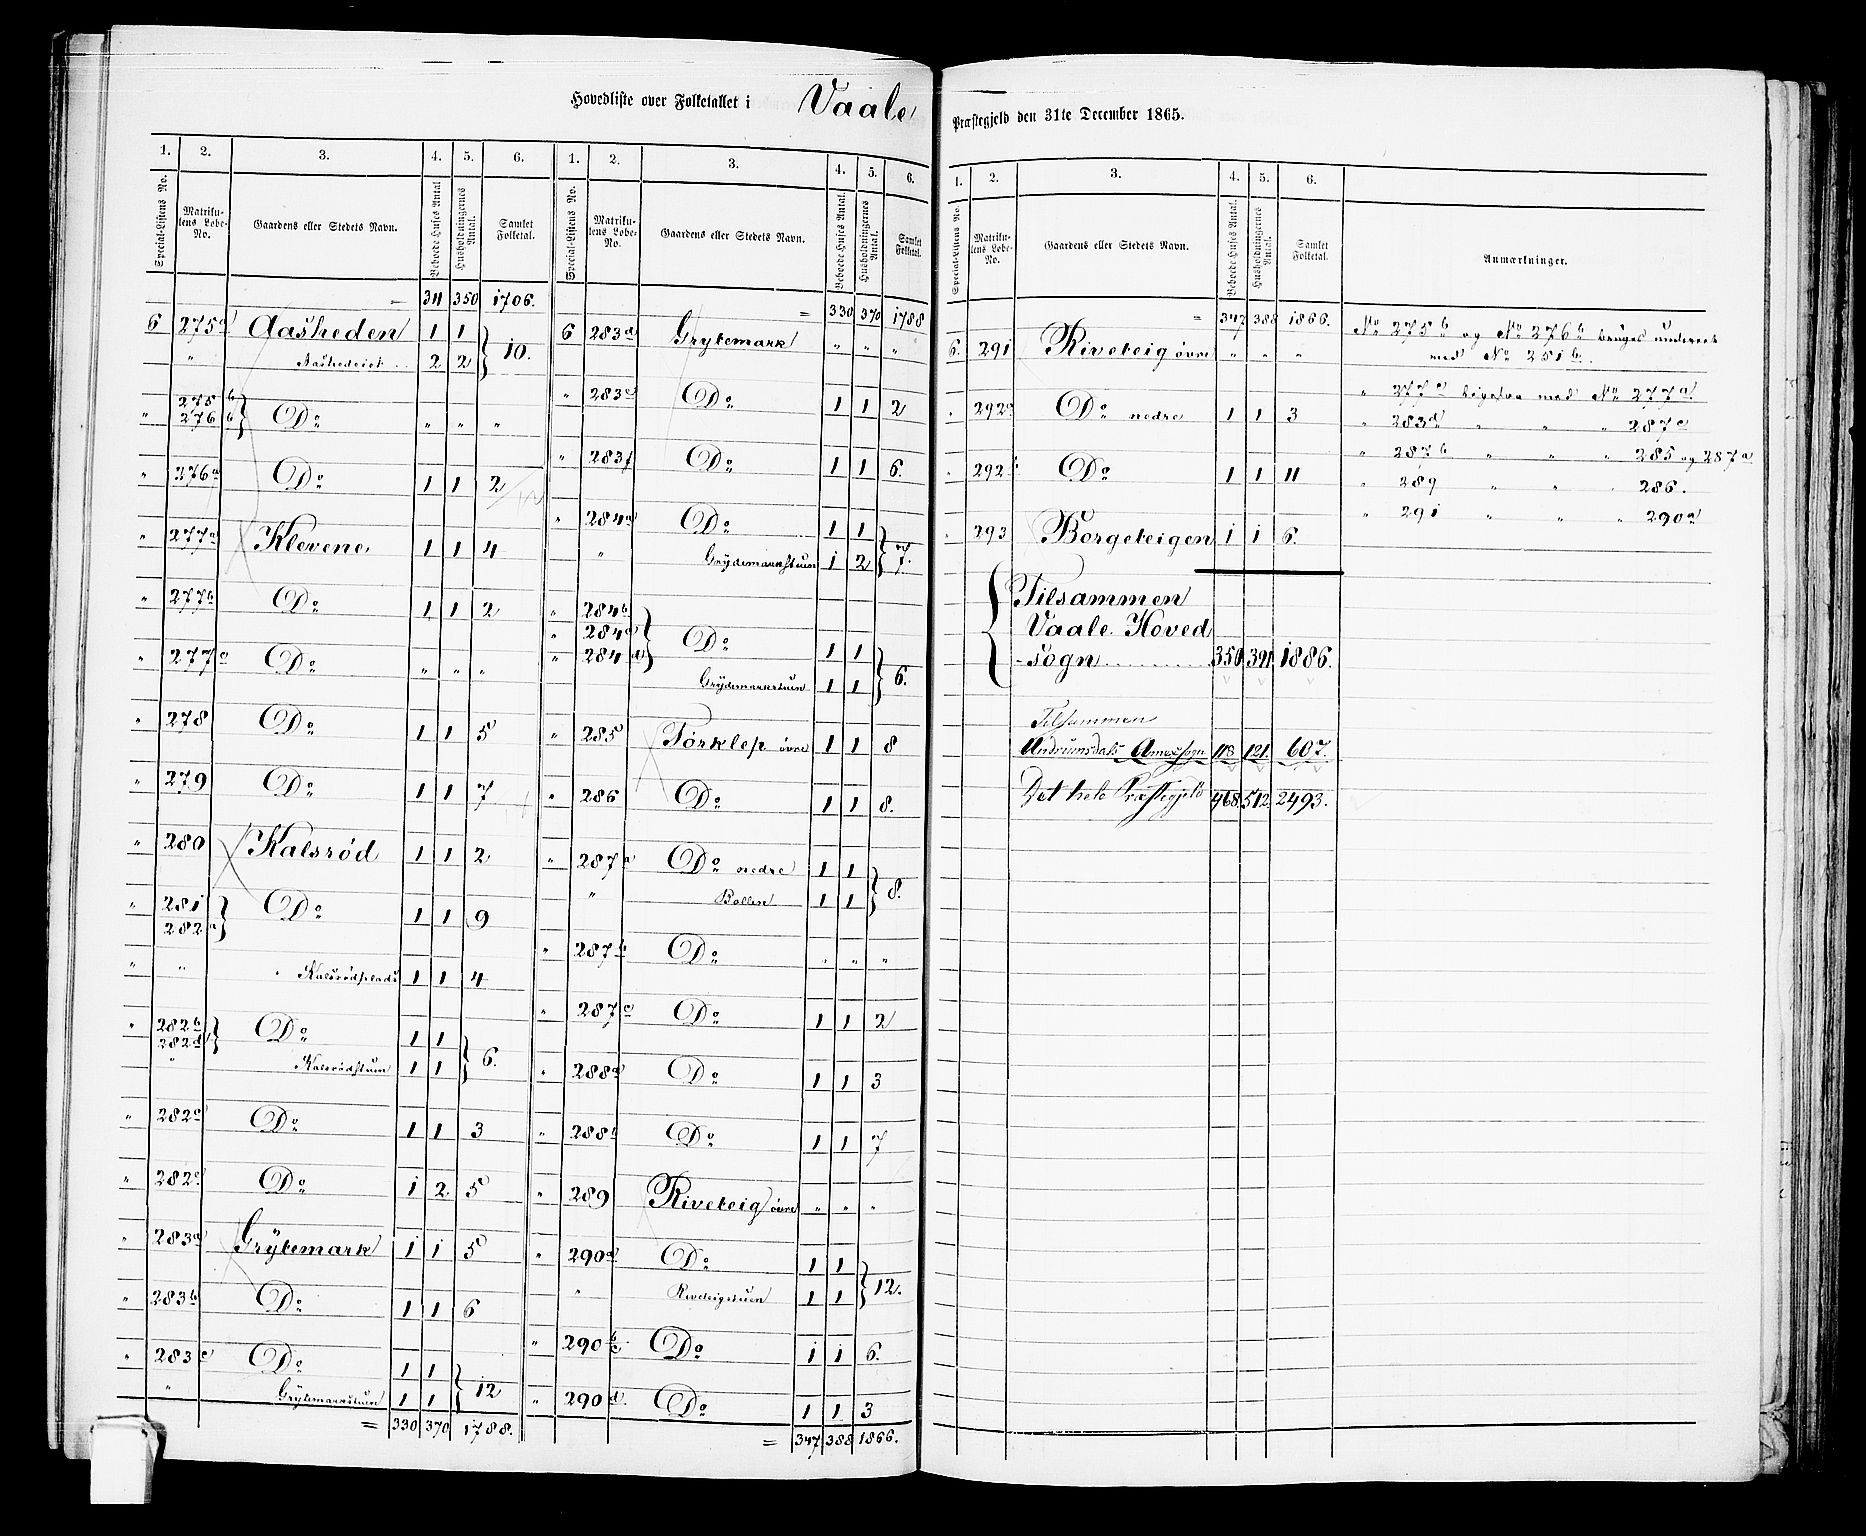 Hovedliste over Folketallet i Vaale Præstegjeld den 31te December 1865.
1. 2. 3. 4. 5. 6.
Special-Listens No. Matrikulens Løbe-No. Gaardens eller Stedets Navn. Beboede Huses Antal Husholdningernes Antal. Samlet Folketal.
= 311 350 1706.
6 275a Aasheden 1 1
" Aashedeiet .. 2 2 } 10.
" 275b 276b } Do " " "
" 276a Do 1 1 2
" 277a Klevene 1 1 4
" 277b Do 1 1 2
" 277c Do " " "
" 278 Do 1 1 5
" 279 Do 1 1 7
" 280 Kalsrød 1 1 2
" 281 282a } Do 1 1 9
" " " Kalsrødplads 1 1 4
" 282b 282d } Do 1 1
" Kalsrødstuen 1 1 } 6.
" 282c Do 1 1 3
" 282e Do 1 2 5
" 283a Grÿtemark 1 1 5
" 283b Do 1 1 6
" 283c Do 1 1
" Grÿtemarkstuen 1 1 } 12
= 330 370 1788.
1. 2. 3. 4. 5. 6.
Special-Listens No. Matrikulens Løbe-No. Gaardens eller Stedets Navn. Beboede Huses Antal. Husholdningernes Antal. Samlet Folketal.
= 330 370 1788
6 283d Grytemark " " "
" 283e Do 1 1 2
" 283f Do 1 1 6.
" 284a Do 1 1
" Grÿdemarkstuen 1 2 } 7.
" 284b
" 284c
" 284d } Do 1 1
Grÿdemarkstuen 1 1 } 6.
" 285 Torklep øvre 1 1 8
" 286 Do 1 1 8.
" 287a Do nedre 1 1
" Ballen 1 1 } 8.
" 287b Do " " "
" 287c Do 1 1 2
" 288a Do 1 1 3
" 288b Do 1 1 7
" 289 Riveteig øvre " " "
" 290a Do 1 1
" Riveteigstuen 1 1 } 12.
" 290b c Do 1 1 6.
" 290d. Do 1 1 3
= 347 388 1866.
1. 2. 3. 4. 5. 6.
Special-Listens No. Matrikulens Løbe-No. Gaardens eller Stedets Navn. Beboede Huses Antal. Husholdningernes Antal. Samlet Folketal. Anmærkninger.
= 347 388 1866.
6. 291 Riveteig øvre " " "
" 292a Do nedre 1 1 3
" 292b Do 1 1 11
" 293 Borgeteigen 1 1 6.
Tilsammen
Vaale Hoved
sogn......... 350 391 1886.
Tilsammen
Undrumsdals Annexsogn 118 121 607.
Det hele Præstegjeld 468 512 2493.
No 275b og No 276b bruges underet
med No 251b.
" 277c ligesaa med No 277a
" 283d " " " 287c
" 287b " " " 285 og 287a
" 289 " " " 286.
" 291 " " " 290a